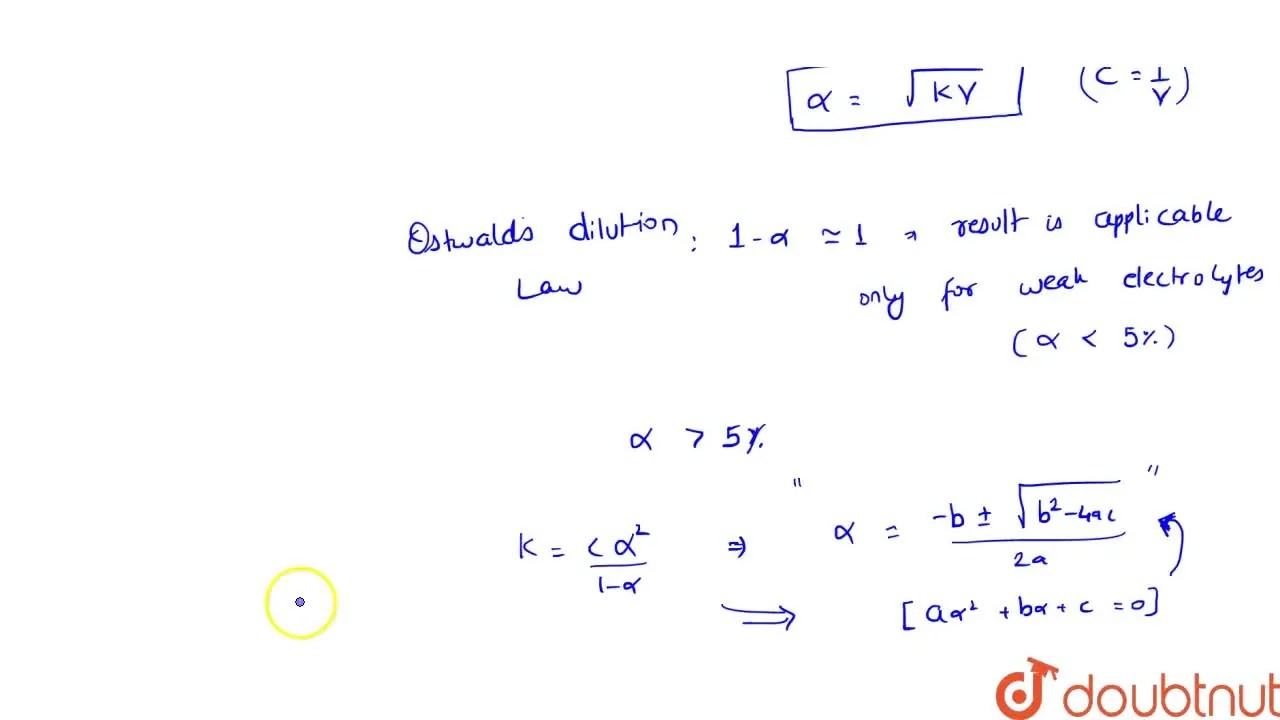 α = √KV (C = 1/V)
Ostwald's dilution : 1-α ≃ 1 ⇒ result is applicable
Law only for weak electrolytes
(α < 5%)
α > 5%
K = Cα²/1-α ⇒ " α = -b ± √b²-4ac/2a "
⟹ [aα² + bα + c = 0]
doubtnut